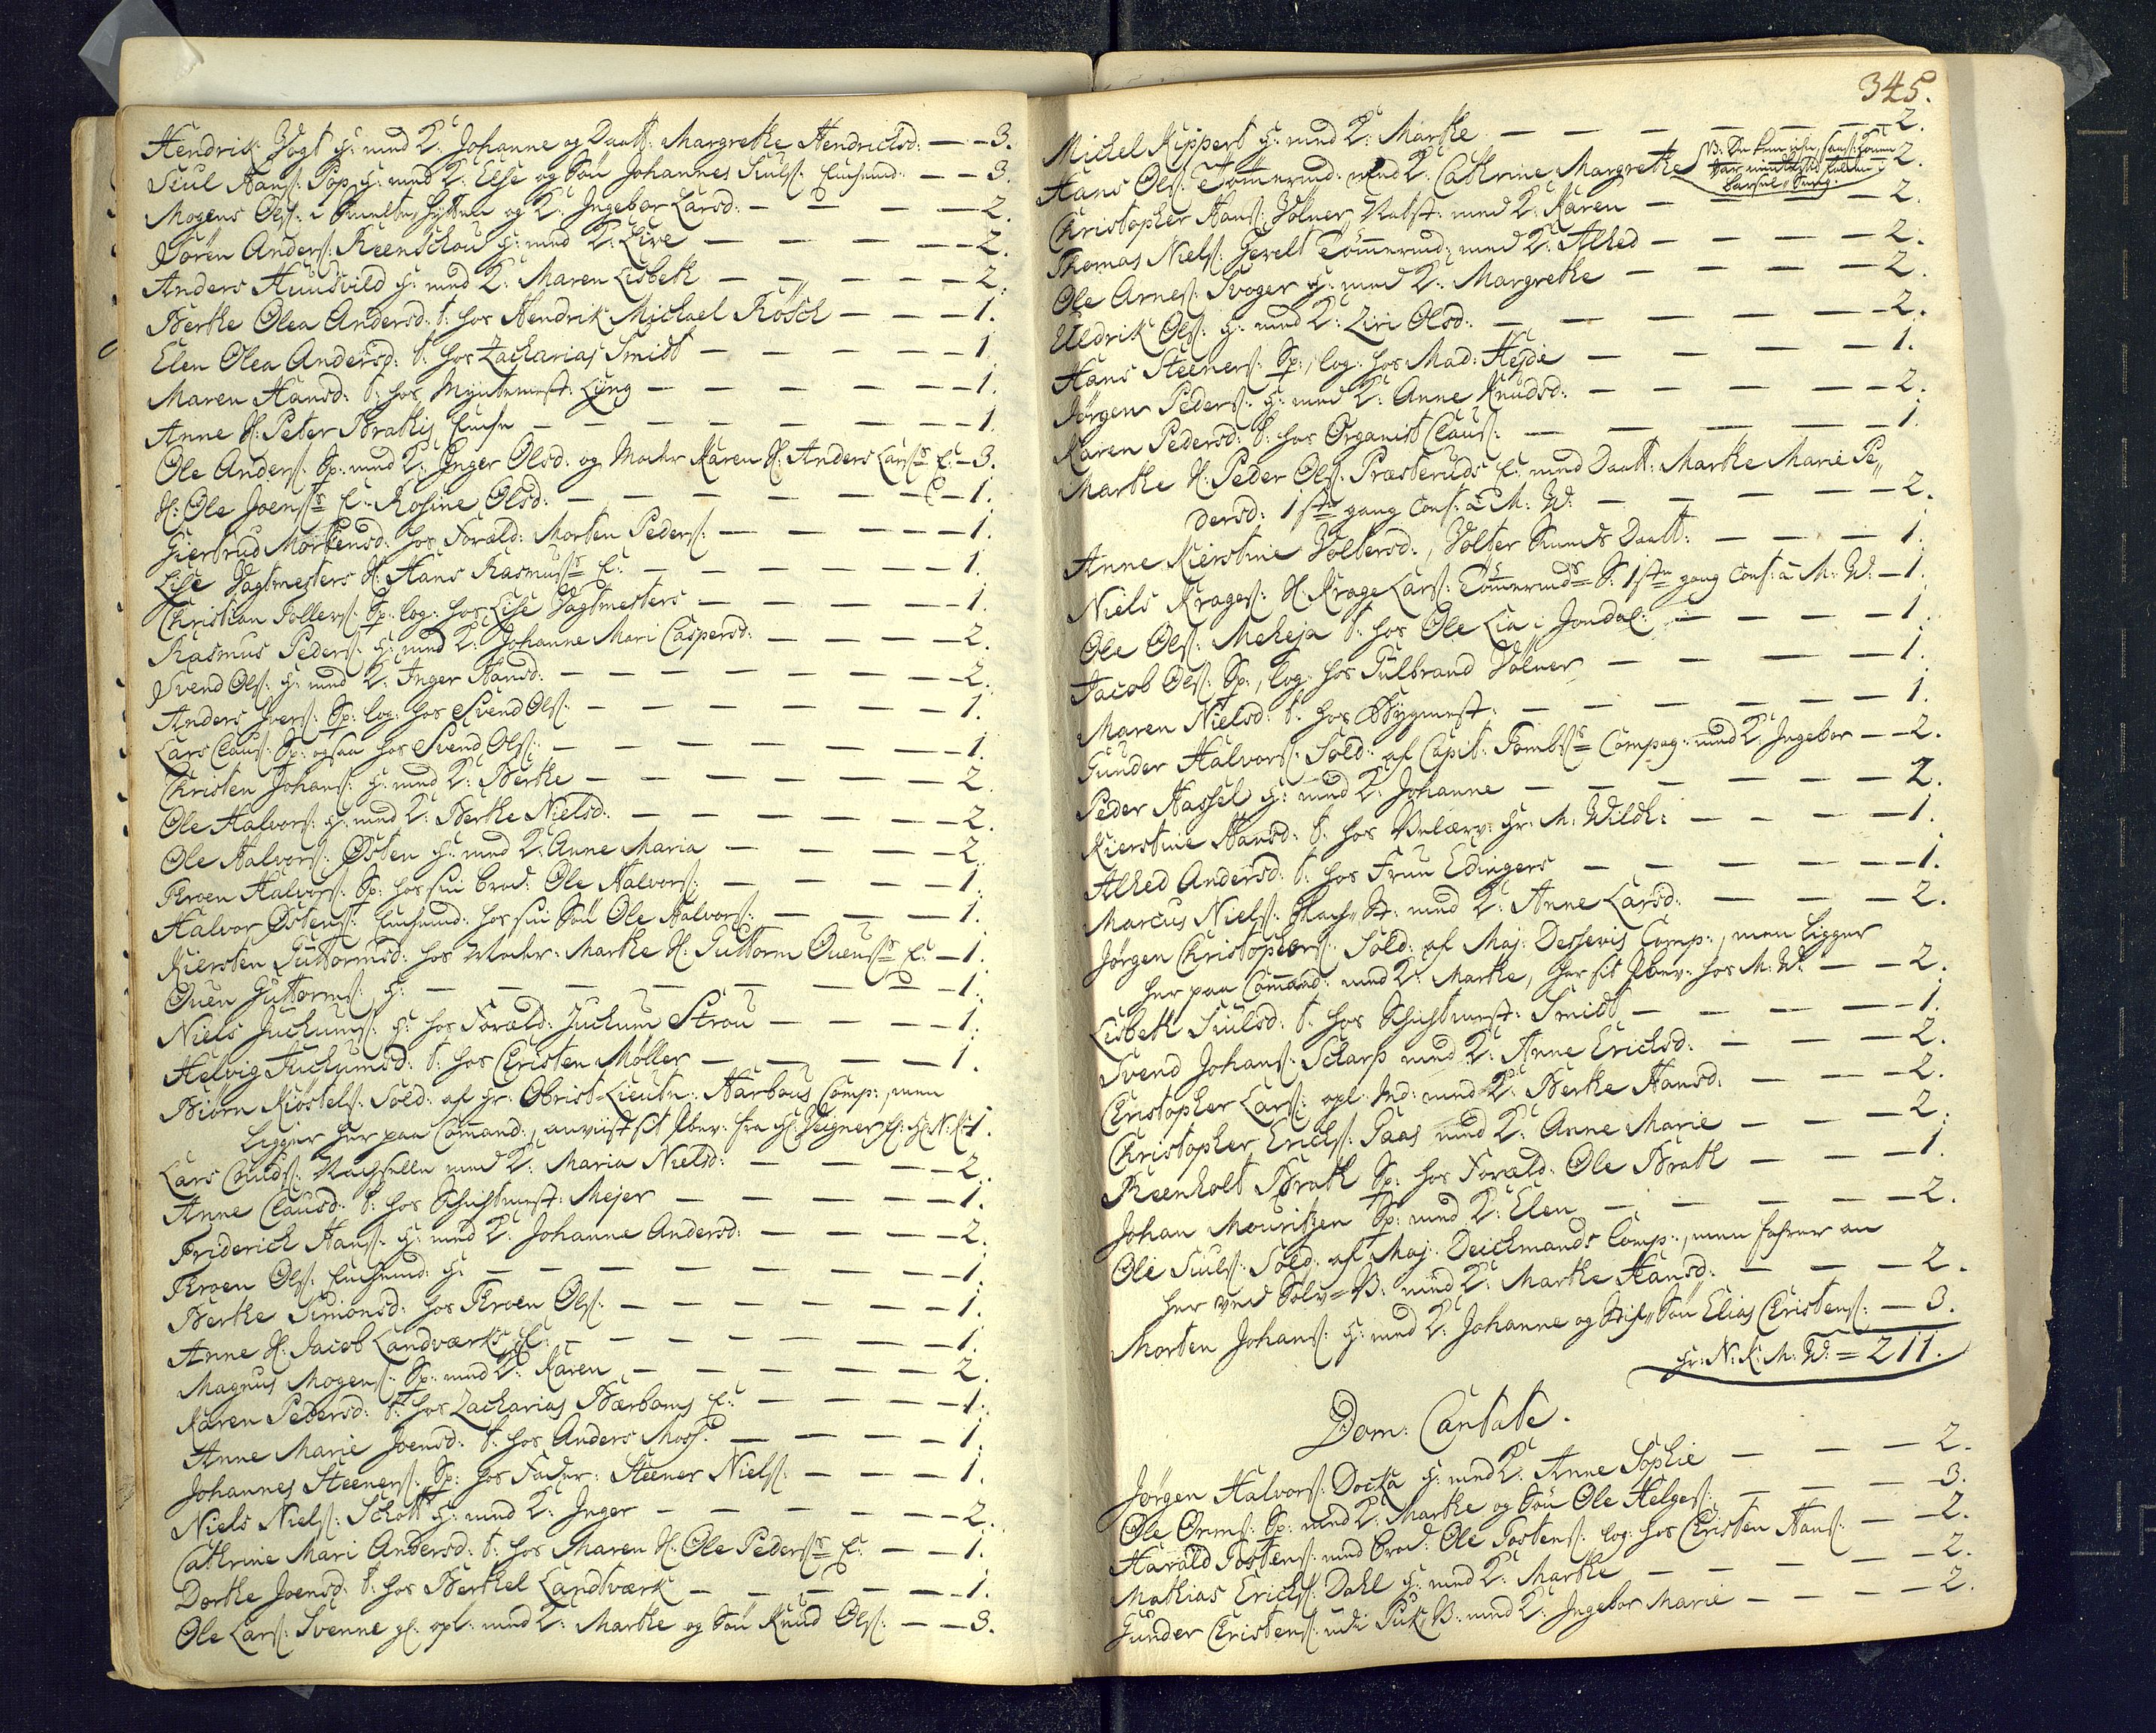 Hendrik Vogt h: med K: Johanne og Daatt: Margrethe Hendrichsd: — — 3.
Siul Hanss: Pop h: med K: Else og Søn Johannes Siulss: — — 3.
Mogens Olss: i Smelte Hytten og K: Ingebor Larsd: — — 2.
Sören Anderss: Reenschou h: med K: Live — — 2.
Anders Hundsvild h: med K: Maren Lisbeth — — 2.
Berthe Olea Andersd: t: hos Hendrik Michael Rösch — — 1.
Elen Olea Andersd: t: hos Zacharias Smidt — — 1
Maren Hansd: t: hos Myntemest: Lyng — — 1.
Anne H: Peter Brathis Enche — — 1.
Ole Anderss: Sp: med K: Inger Olsd: og Moder Karen H: Anders Larss: E: — 3.
H: Ole Joenss: E: Rosine Olsd: — — 1.
Giertrud Mortensd: hos Foræld: Morten Pederss: — — 1.
Lise Vagtmesters H: Hans Rasmuss: E: — — 1.
Christian Tollefss: Sp: log: hos Lise Vagtmesters — — 1.
Rasmus Pederss: h: med K: Johanne Mari Caspersd: — — 2.
Svend Olss: h: med K: Inger Hansd: — — 2.
Anders Iverss: Sp: log: hos Svend Olss: — — 1.
Lars Clauss: Sp: ogsaa hos Svend Olss: — — 1.
Christen Johanss: h: med K: Berthe — — 2.
Ole Halvorss: h: med K: Berthe Nielsd: — — 2.
Ole Halvorss: Östen h: med K: Anne Maria — — 2.
Throen Halvorss: Sp: hos sin brod: Ole Halvorss: — — 1.
Halvor Östenss: hos sin Søn Ole Halvorss: — — 1.
Kiersten Guttormsd: hos Moder: Marthe H: Guttorm Ouenss: E: — 1.
Ouen Guttormss: h: — — 1.
Niels Juchumss: h: hos Foræld: Juchum Strou — — 1.
Helvig Juchumsd: t: hos Christen Møller — — 1.
Biörn Kiöstelss: Sold: af Hr: Obrist-Lieutn: Harbous Comp:, men
ligger her paa Comand:, anviist sit fra — 1.
Lars Cnuds: med K: Maria Nielsd: — — 2.
Anne Clausd: t: hos Schichtmest: Mejer — — 1.
Friderich Hanss: h: med K: Johanne Andersd: — — 2.
Throen Olss: h: — — 1.
Berthe Simonsd: hos Throen Olss: — — 1.
Anne H: Jacob Landværks E: — — 1.
Magnus Mogenss: Sp: med K: Karen — — 2.
Karen Pedersd: t: hos Zacharias Bærboms E: — — 1.
Anne Marie Joensd: t: hos Anders Moss: — — 1.
Johannes Steenerss: Sp: hos Fader: Steener Nielss: — — 1.
Niels Nielss: Schott h: med K: Inger — — 2.
Cathrine Mari Andersd: t: hos Maren H: Ole Pederss: E: — — 1.
Dorthe Joensd: t: hos Berthel Landtværk — — 1.
Ole Larss: Svenne gl: opl: med K: Marthe og Søn Knud Olss: — — 3.
345.
Michel Rippert h: med K: Marthe — — 2.
Hans Olss: Tömerud: med K: Cathrine Margrethe — 2.
Christopher Hanss: Volner med K: Karen — — 2.
Thomas Nielss: Gevelt Tömerud: med K: Alhed — — 2.
Ole Arness: Svoger h: med K: Margrethe — — 2.
Uldrik Olss: h: med K: Ziri Olsd: — — 2.
Hans Steenerss: Sp:, log: hos Mad: Hejde — — 1.
Jörgen Pederss: h: med K: Anne Knudsd: — — 2.
Karen Pedersd: t: hos Organist Clauss: — — 1.
Marthe H: Peder Olss: Præsteruds E: med Daatt: Marthe Marie Pe„
dersd: 1ste gang Conf: à M: W: — — 2.
Anne Kierstine Woltersd:, Wolter Daatt: — — 1.
Niels Kragess: H: Krage Larss: Tömeruds S: 1ste gang Conf: à M: W: — 1.
Ole Olss: Meheja t: hos Ole Lia i Jondal: — — 1.
Jacob Olss: Sp:, log: hos Gulbrand Volner — — 1.
Maren Nielsd: t: hos Bÿgmest: — — 1.
Gunder Halvorss: Sold: af Capit: Compag: med K: Ingebor — — 2.
Peder Hassel h: med K: Johanne — — 2.
Kierstine Hansd: t: hos Hr: M: Wildh: — — 1.
Alhed Andersd: t: hos Fruu Edingers — — 1.
Marcus Nielss: med K: Anne Larsd: — — 2.
Jörgen Christopherss: Sold: af Maj: Comp:, men ligger
her paa Comand: med K: Marthe, har sit hos M: W: — — 2.
Lisbeth Siulsd: t: hos Schichtmest: Smidt — — 1.
Svend Johanss: Scharp med K: Anne Erichsd: — — 2.
Christopher Larss: opl: med K: Berthe Hansd: — — 2.
Christopher Erichss: Paas med K: Anne Marie — — 2.
Reenholt Brath Sp: hos Foræld: Ole Brath — — 1.
Johan Mouritzen Sp: med K: Elen — — 2.
Ole Siulss: Sold: af Maj: Deichmands Comp:, men
her ved Sölv-B: med K: Marthe Hansd: — — 2.
Morten Johanss: h: med K: Johanne og Stif„Søn Elias Christenss: — 3.
Hr: N: K: M: W: = 211.
Dom: Cantate.
Jörgen Halvorss: Docka h: med K: Anne Sophie — — 2.
Ole Ormss: Sp: med K: Marthe og Søn Ole Helgess: — — 3.
Harald Tostenss: med brod: Ole Tostenss: log: hos Christen Hanss: — — 2.
Mathias Erichss: Dahl h: med K: Marthe — — 2.
Gunder Christenss: med K: Ingebor Marie — — 2.